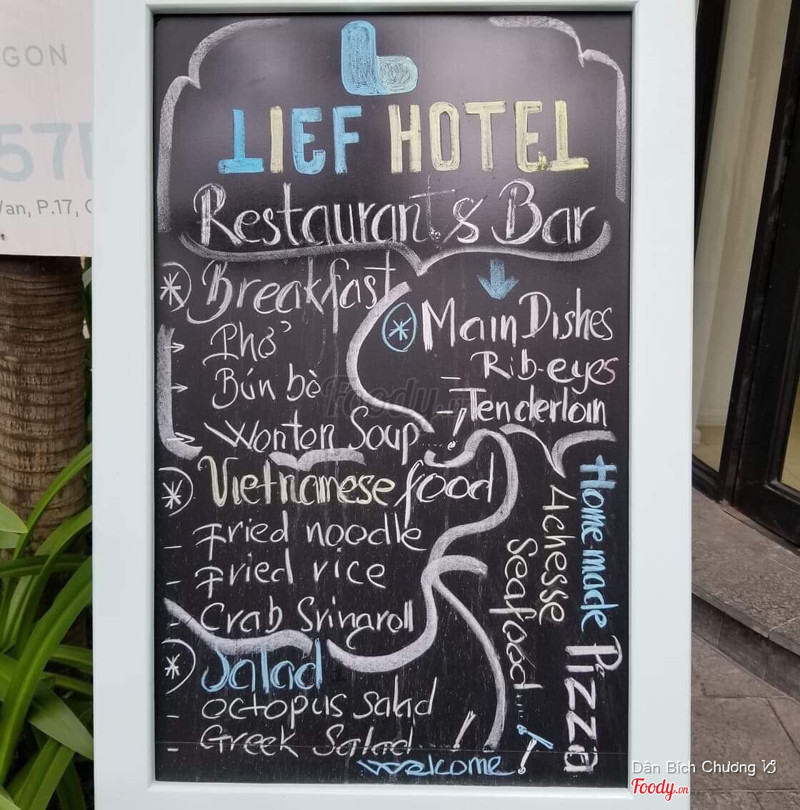 GON
57
Van, P.17,
LIEF HOTEL
Restaurant & Bar
Breakfast
Phở
Bún bò
Wonton Soup
Main Dishes
- Rib-eyes
- Tenderloin
Vietnamese food
- Fried noodle
- Fried rice
- Crab Sringroll
Salad
- Octopus salad
- Greek Salad
Home made Pizza
4 chesse
Seafood...!
welcome!
Foody.vn
Dân Bích Chương
Foody.vn